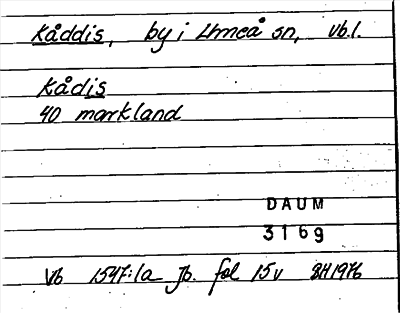 Kåddis, by i Umeå sn, Vb.l.
Kådis
40 markland
DAUM
3169
Vb 1547:1a Jb. fol 15v BH1976